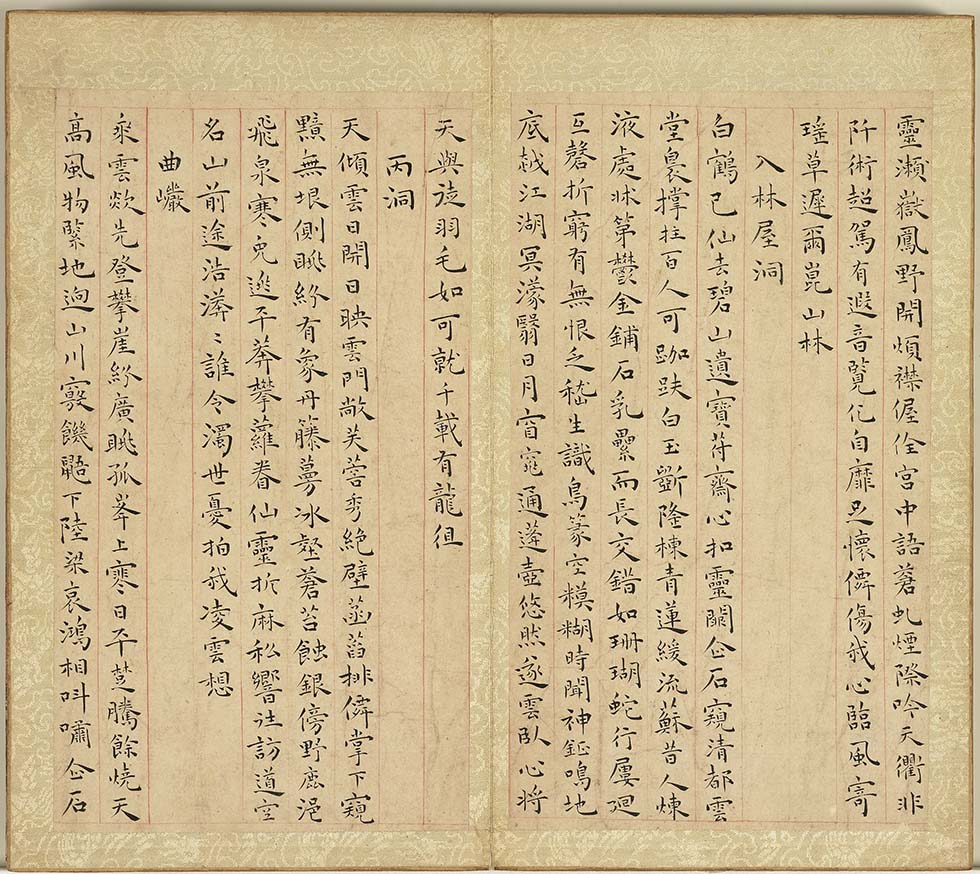 靈瀨嶽鳳野開煩襟偓佺宮中語蒼虬煙際吟天衢非
阡術超駕有遐音覽化自靡足懷僊傷我心臨風寄
瑤草遲爾崑山林
入林屋洞
白鶴已仙去碧山遺寶符齋心扣靈關企石窺清都雲
堂裊撐拄百人可跏趺白玉斲隆棟青蓮緩流蘇昔人煉
液處牀第鬱金鋪石乳纍而長交錯如珊瑚蛇行屢迴
互磬折窮有無恨乏嵇生識鳥篆空糢糊時聞神鉦鳴地
底越江湖冥濛翳日月窅窕通蓬壺悠然遂雲臥心將
天與徒羽毛如可就千載有龍徂
丙洞
天傾雲日開日映雲門敞芙蓉秀絕壁菡萏排僊掌下窺
黷無垠側眺紛有象丹藤蔓冰壑蒼苔蝕銀傍野鹿浥
飛泉寒兔逃平莽攀蘿眷仙靈折麻私響往訪道空
名山前途浩漭〻誰令濁世憂拍我凌雲想
曲巖
乘雲欻先登攀崖紛廣眺孤峯上寒日平楚騰餘燒天
高風物緊地迥山川竅饑鼯下陸梁哀鴻相叫嘯企石